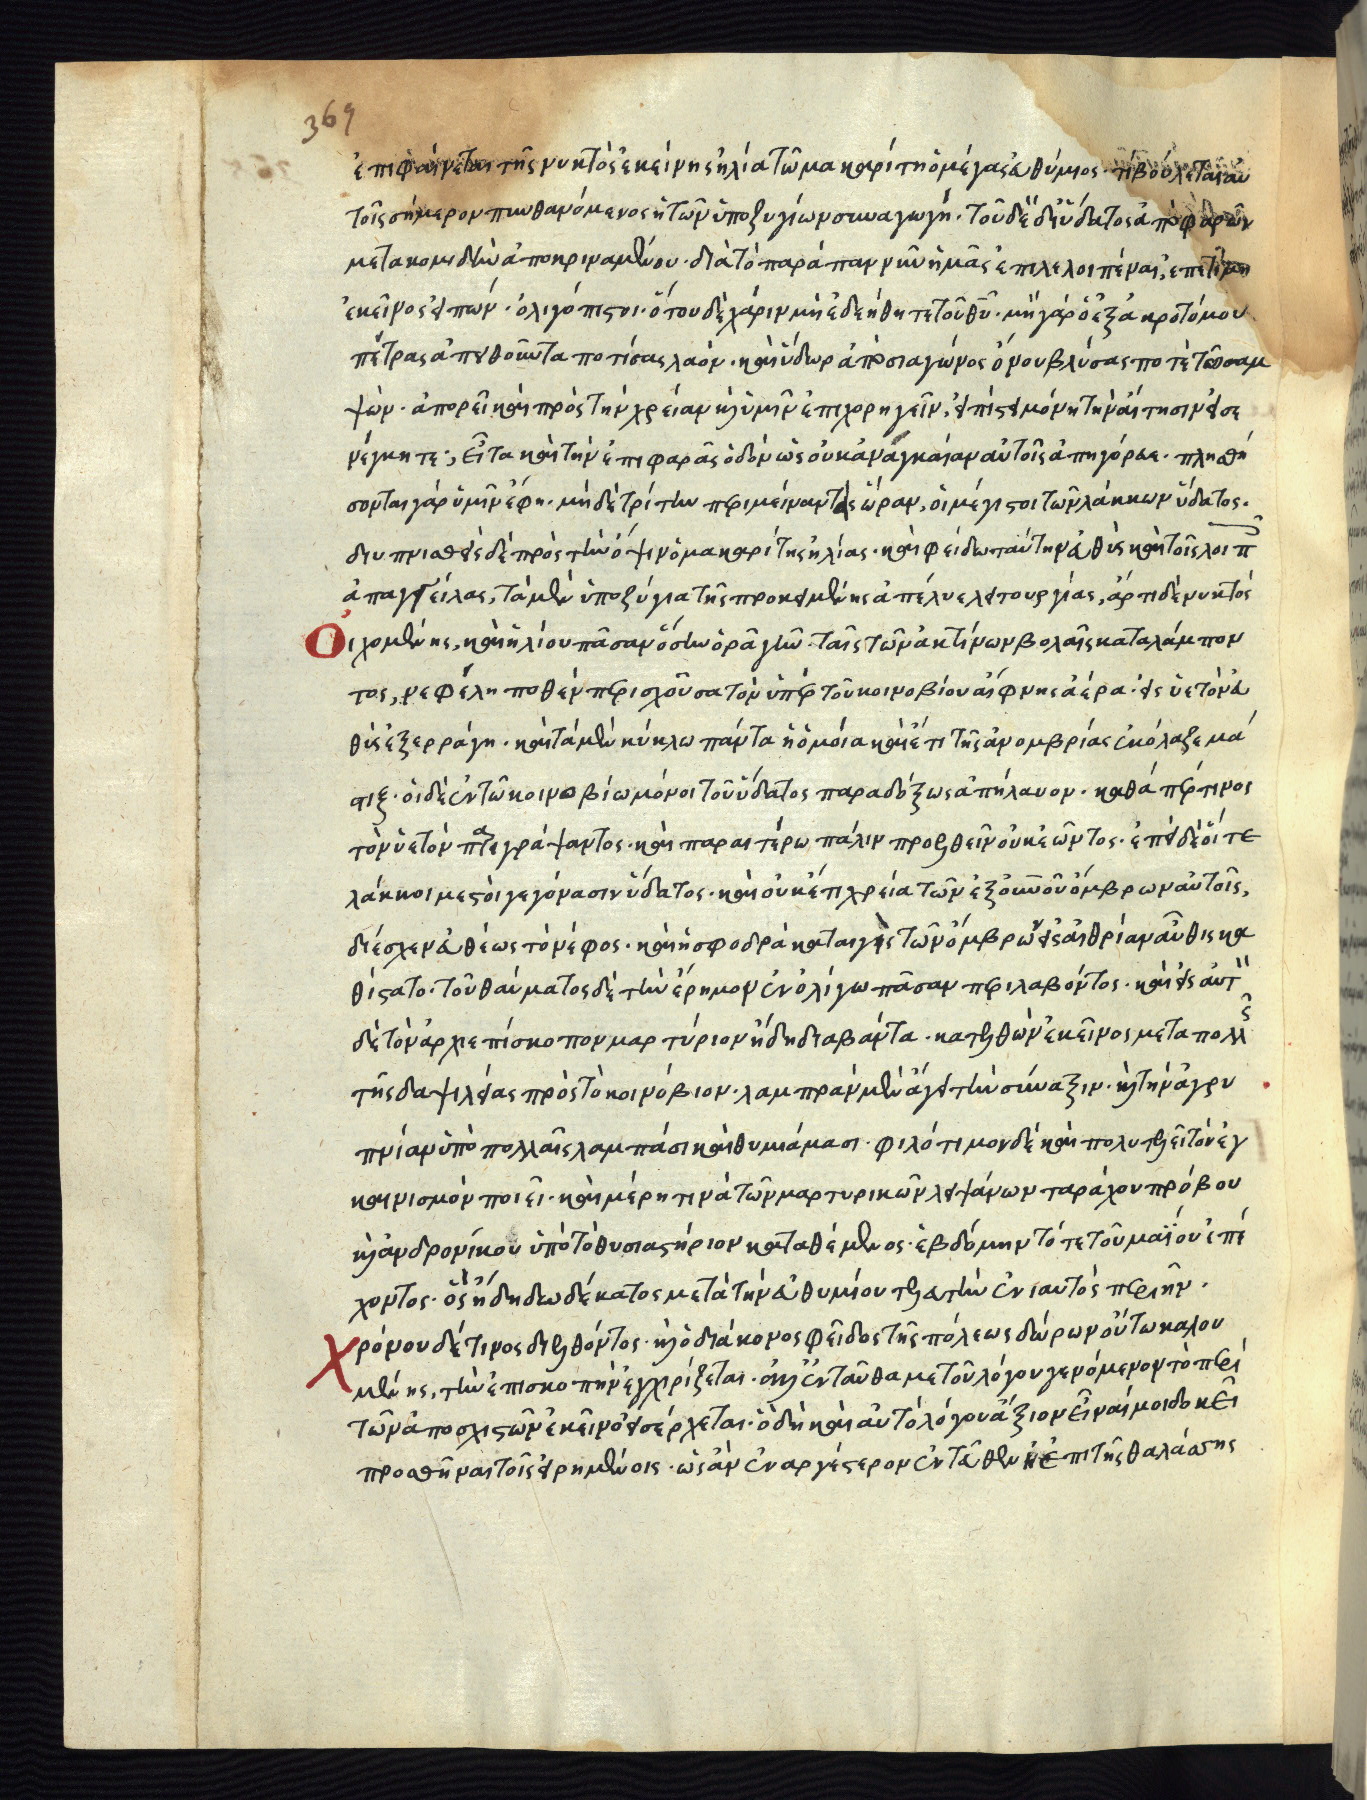 369
ἐπιφαίνεται τῆς νυκτὸς ἐκείνης ἠλία τῶ μακαρίτη ὁ μέγας εὐθύμιος· τί βούλεται αὐ
τοῖς σήμερον πυνθανόμενος ἡ τῶν ὑποζυγίων συναγωγή· τοῦ δὲ δι' ὕδατος ἀπὸ φαρῶν
μετακομιδὴν ἀποκριναμένου· διὰ τὸ παράπαν νῦν ἡμᾶς ἐπιλελοιπέναι, ἐπετίμα
ἐκεῖνος εἰπών· ὀλιγόπιστοι· ὅτου δὲ χάριν μὴ ἐδεήθητε τοῦ θῦ· μὴ γὰρ ὁ ἐξ ἀκροτόμου
πέτρας ἀπειθοῦντα ποτίσας λαόν· καὶ ὕδωρ ἀπὸ σιαγῶνος ὄνου βλύσας ποτὲ τῶ σαμ
ψών· ἀπορεῖ καὶ πρὸς τὴν χρείαν καὶ ὑμῖν ἐπιχορηγεῖν, εἰ πίστει μόνῃ τὴν αἴτησιν εἰσε
νέγκητε; εἶτα καὶ τὴν ἐπὶ φαρᾶς ὁδὸν ὡς οὐκ ἀναγκαίαν αὐτοῖς ἀπηγόρευε· πλησθή
σονται γὰρ ὑμῖν ἔφη· μὴ δὲ τρίτην περιμείναντες ὥραν, οἱ μέγιστοι τῶν λάκκων ὕδατος·
διυπνισθεὶς δὲ πρὸς τὴν ὄψιν ὁ μακαρίτης ἠλίας· καὶ φείδω ταύτην εὐθὺς καὶ τοῖς λοιπ
ἀπαγγείλας, τὰ μὲν ὑποζύγια τῆς προκειμένης ἀπέλυε λειτουργίας, ἄρτι δὲ νυκτὸς
Οἰχομένης, καὶ ἡλίου πᾶσαν ὅσην ὁρᾷ γῆν· ταῖς τῶν ἀκτίνων βολαῖς καταλάμπον
τος, νεφέλη ποθὲν περισχοῦσα τὸν ὑπὲρ τοῦ κοινοβίου αἴφνης ἀέρα· εἰς ὑετὸν εὐ
θὺς ἐξερράγη· καὶ τὰ μὲν κύκλω πάντα ἡ ὁμοία καὶ ἔτι τῆς ἀνομβρίας ἐκόλαζε μά
στιξ· οἱ δὲ ἐν τῶ κοινοβίω μόνοι τοῦ ὕδατος παραδόξως ἀπήλαυον· καθάπέρ τινος
τὸν ὑετὸν περιγράψαντος· καὶ παραιτέρω πάλιν προελθεῖν οὐκ ἐῶντος· ἐπεὶ δὲ οἵ τε
λάκκοι μεστοὶ γεγόνασιν ὕδατος· καὶ οὐκέτι χρεία τῶν ἐξ οὐνοῦ ὄμβρων αὐτοῖς,
διέσχεν εὐθέως τὸ νέφος· καὶ ἡ σφοδρὰ καταιγὶς τῶν ὄμβρων εἰς αἰθρίαν αὖθις κα
θίσατο· τοῦ θαύματος δὲ τὴν ἔρημον ἐν ὀλίγω πᾶσαν περιλαβόντος· καὶ εἰς αὐτ
δὲ τὸν ἀρχιεπίσκοπον μαρτύριον ἤδη διαβάντα· κατελθὼν ἐκεῖνος μετὰ πολλ
τῆς δαψιλείας πρὸς τὸ κοινόβιον· λαμπρὰν μὲν ἄγει τὴν σύναξιν· καὶ τὴν ἀγρυ
πνίαν ὑπὸ πολλαῖς λαμπάσι καὶ θυμιάμασι· φιλότιμον δὲ καὶ πολυτελεῖ τὸν ἐγ
καινισμὸν ποιεῖ· καὶ μέρη τινὰ τῶν μαρτυρικῶν λειψάνων ταράχου πρόβου
καὶ ἀνδρονίκου ὑπὸ τὸ θυσιαστήριον καταθέμενος· ἑβδόμην τότε τοῦ μαΐου ἐπέ
χοντος· ὃς ἤδη δωδέκατος μετὰ τὴν εὐθυμίου τελευτὴν ἐνιαυτὸς περιῆν·
Χρόνου δέ τινος διελθόντος· καὶ ὁ διάκονος φεῖδος τῆς πόλεως δώρων οὕτω καλου
μένης, τὴν ἐπισκοπὴν ἐγχειρίζεται· ἀλλ' ἐνταῦθα με τοῦ λόγου γενόμενον τὸ περὶ
τῶν ἀποσχιστῶν ἐκεῖνο εἰσέρχεται· ὃ δὴ καὶ αὐτὸ λόγου ἄξιον εἶναί μοι δοκεῖ
προσθῆναι τοῖς εἰρημένοις· ὡς ἂν ἐναργέστερον ἐντεῦθεν ἐπὶ τῆς θαλάσσης